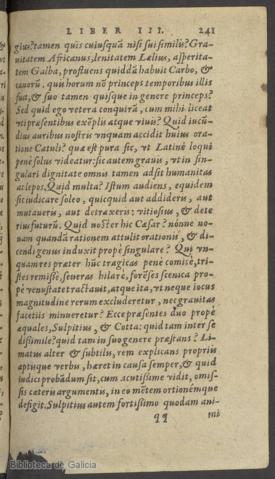 LIBER III. 241
gius? tamen quis cuiusquā nisi sui similis? Gra-
uitatem Africanus, lenitatem Lælius, asperita-
tem Galba, profluens quiddā habuit Carbo, &
canorū, quis horum nō princeps temporibus illis
fuit, & suo tamen quisque in genere princeps?
Sed quid ego vetera conquirā, cum mihi liceat
vti præsentibus exēplis atque viuis? Quid iucū-
dius auribus nostris vnquam accidit huius ora-
tione Catuli? quæ est pura sic, vt Latinè loqui
penè solus videatur: sic autem grauis, vt in sin-
gulari dignitate omnis tamen adsit humanitas
ac lepos. Quid multa? Istum audiens, equidem
sic iudicare soleo, quicquid aut addideris, aut
mutaueris, aut detraxeris: vitiosius, & dete
rius futurū. Quid noster hic Cæsar? nōnne no-
uam quandā rationem attulit orationis, & di-
cendi genus induxit propè singulare? Quis vn-
quam res præter hūc tragicas penè comicè, tri-
stes remissè, seueras hilarè, forēses scenica pro-
pè venustate tractauit, atque ita, vt neque iocus
magnitudine rerum excluderetur, nec grauitas
facetiis minueretur? Ecce præsentes duo propè
æquales, Sulpitius, & Cotta: quid tam inter se
dissimile? quid tam in suo genere præstans? Li-
matus alter & subtilis, rem explicans propriis
aptisque verbis, hæret in causa semper, & quid
iudici probādum sit, cum acutissimè vidit, omis-
sis cæteris argumentis, in eo mētem orationémque
defigit. Sulpitius autem fortissimo quodam ani-
mi
Biblioteca de Galicia